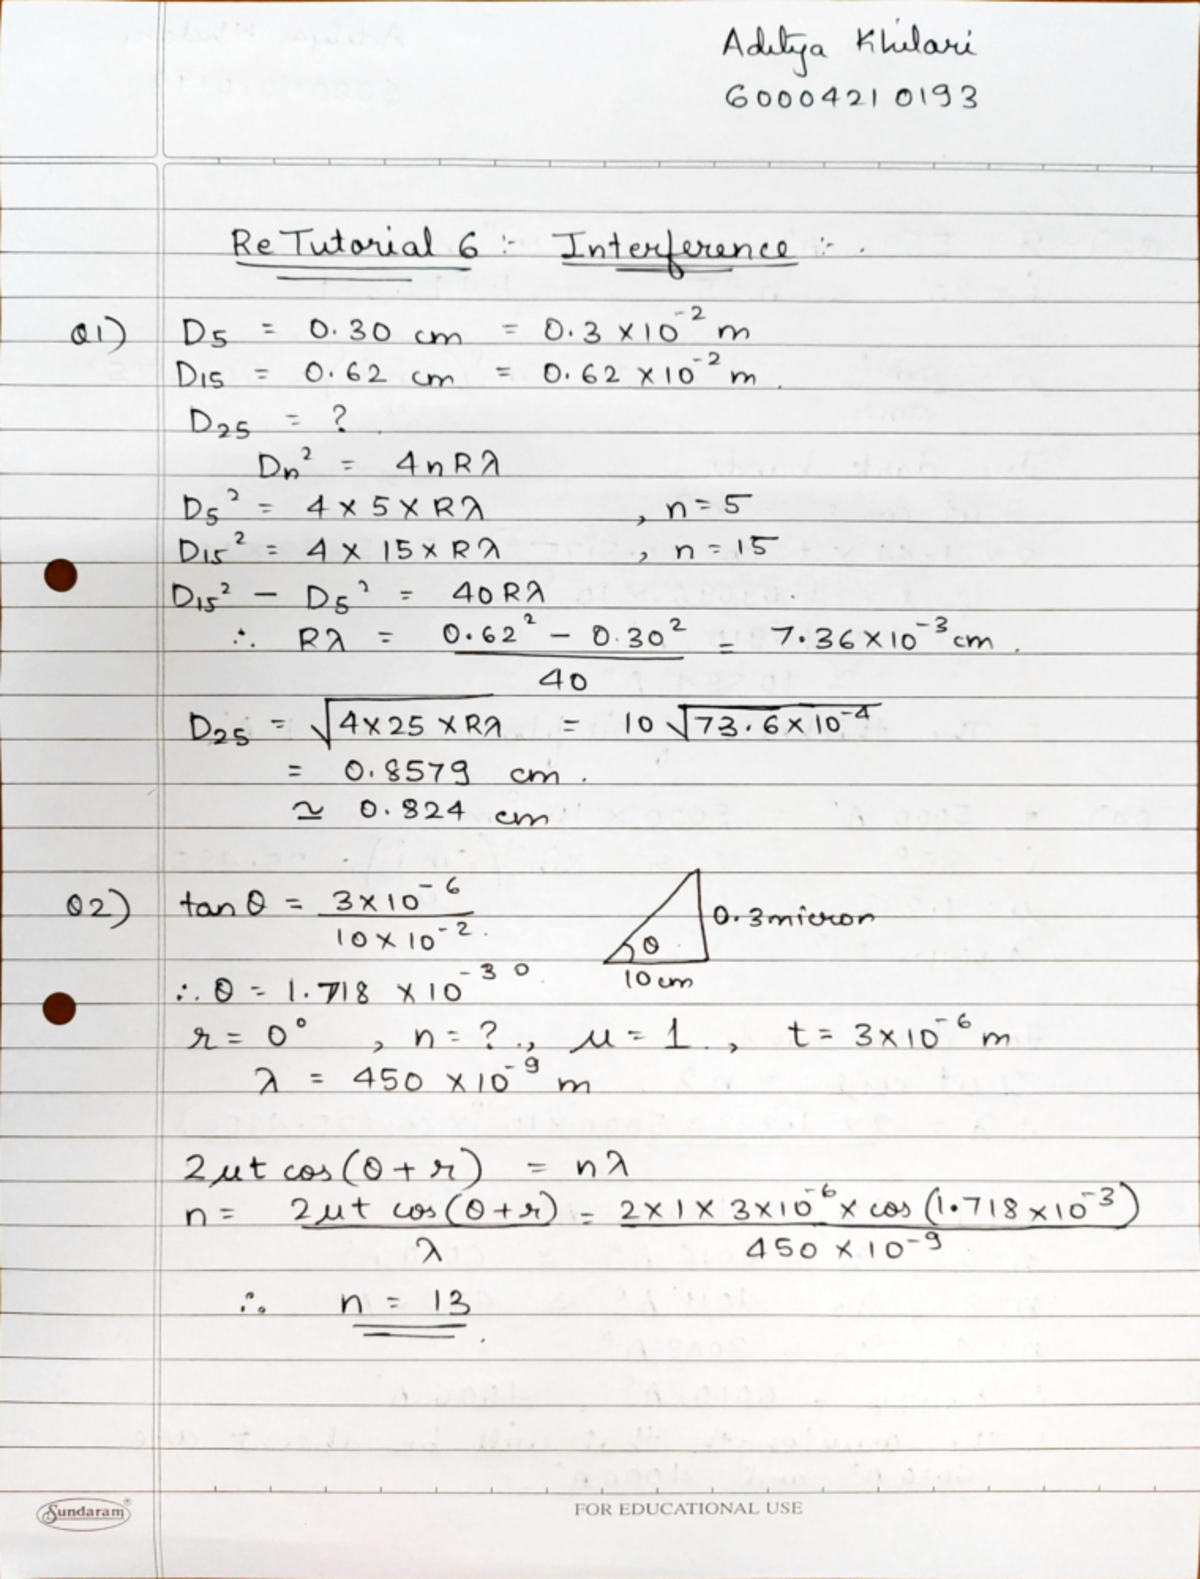 Aditya Khilari
60004210193
Re Tutorial 6 :- Interference :- .
Q1) D5 = 0.30 cm = 0.3 × 10⁻² m
D15 = 0.62 cm = 0.62 × 10⁻² m.
D25 = ?
Dn² = 4nRλ
D5² = 4 × 5 × Rλ , n = 5
D15² = 4 × 15 × Rλ , n = 15
D15² − D5² = 40Rλ
∴ Rλ = (0.62² − 0.30²) / 40 = 7.36 × 10⁻³ cm.
D25 = √(4×25×Rλ) = 10 √(73.6 × 10⁻⁴)
= 0.8579 cm.
≃ 0.824 cm
Q2) tan θ = (3×10⁻⁶) / (10×10⁻².) 0.3 micron
θ
10 cm
∴ θ = 1.718 × 10⁻³ °.
r = 0° , n = ? ., μ = 1. , t = 3×10⁻⁶ m
λ = 450 × 10⁻⁹ m
2μt cos(θ + r) = nλ
n = 2μt cos(θ+r) / λ = 2 × 1 × 3×10⁻⁶ × cos (1.718×10⁻³) / 450 × 10⁻⁹
∴ n = 13.
Sundaram® FOR EDUCATIONAL USE